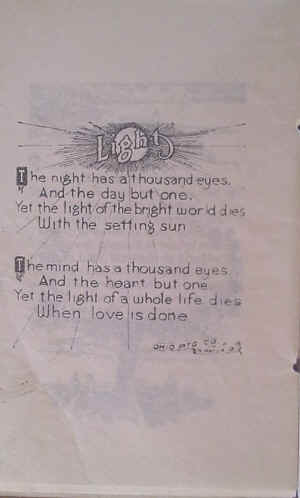 Light
The night has a thousand eyes.
And the day but one.
Yet the light of the bright world dies
With the setting sun
The mind has a thousand eyes.
And the heart but one.
Yet the light of a whole life dies
When love is done
OHIO PTG CO